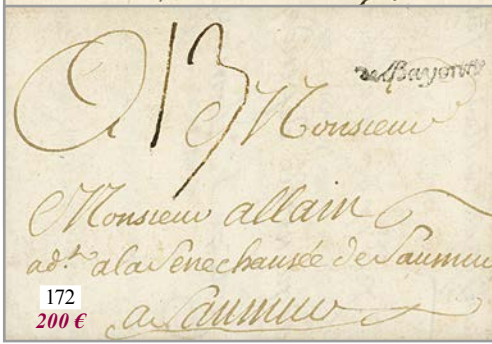 de Bayonne
A Monsieur
13
Monsieur allain
ad.t a la Senechausée de Saumur
a Saumur
172
200 €